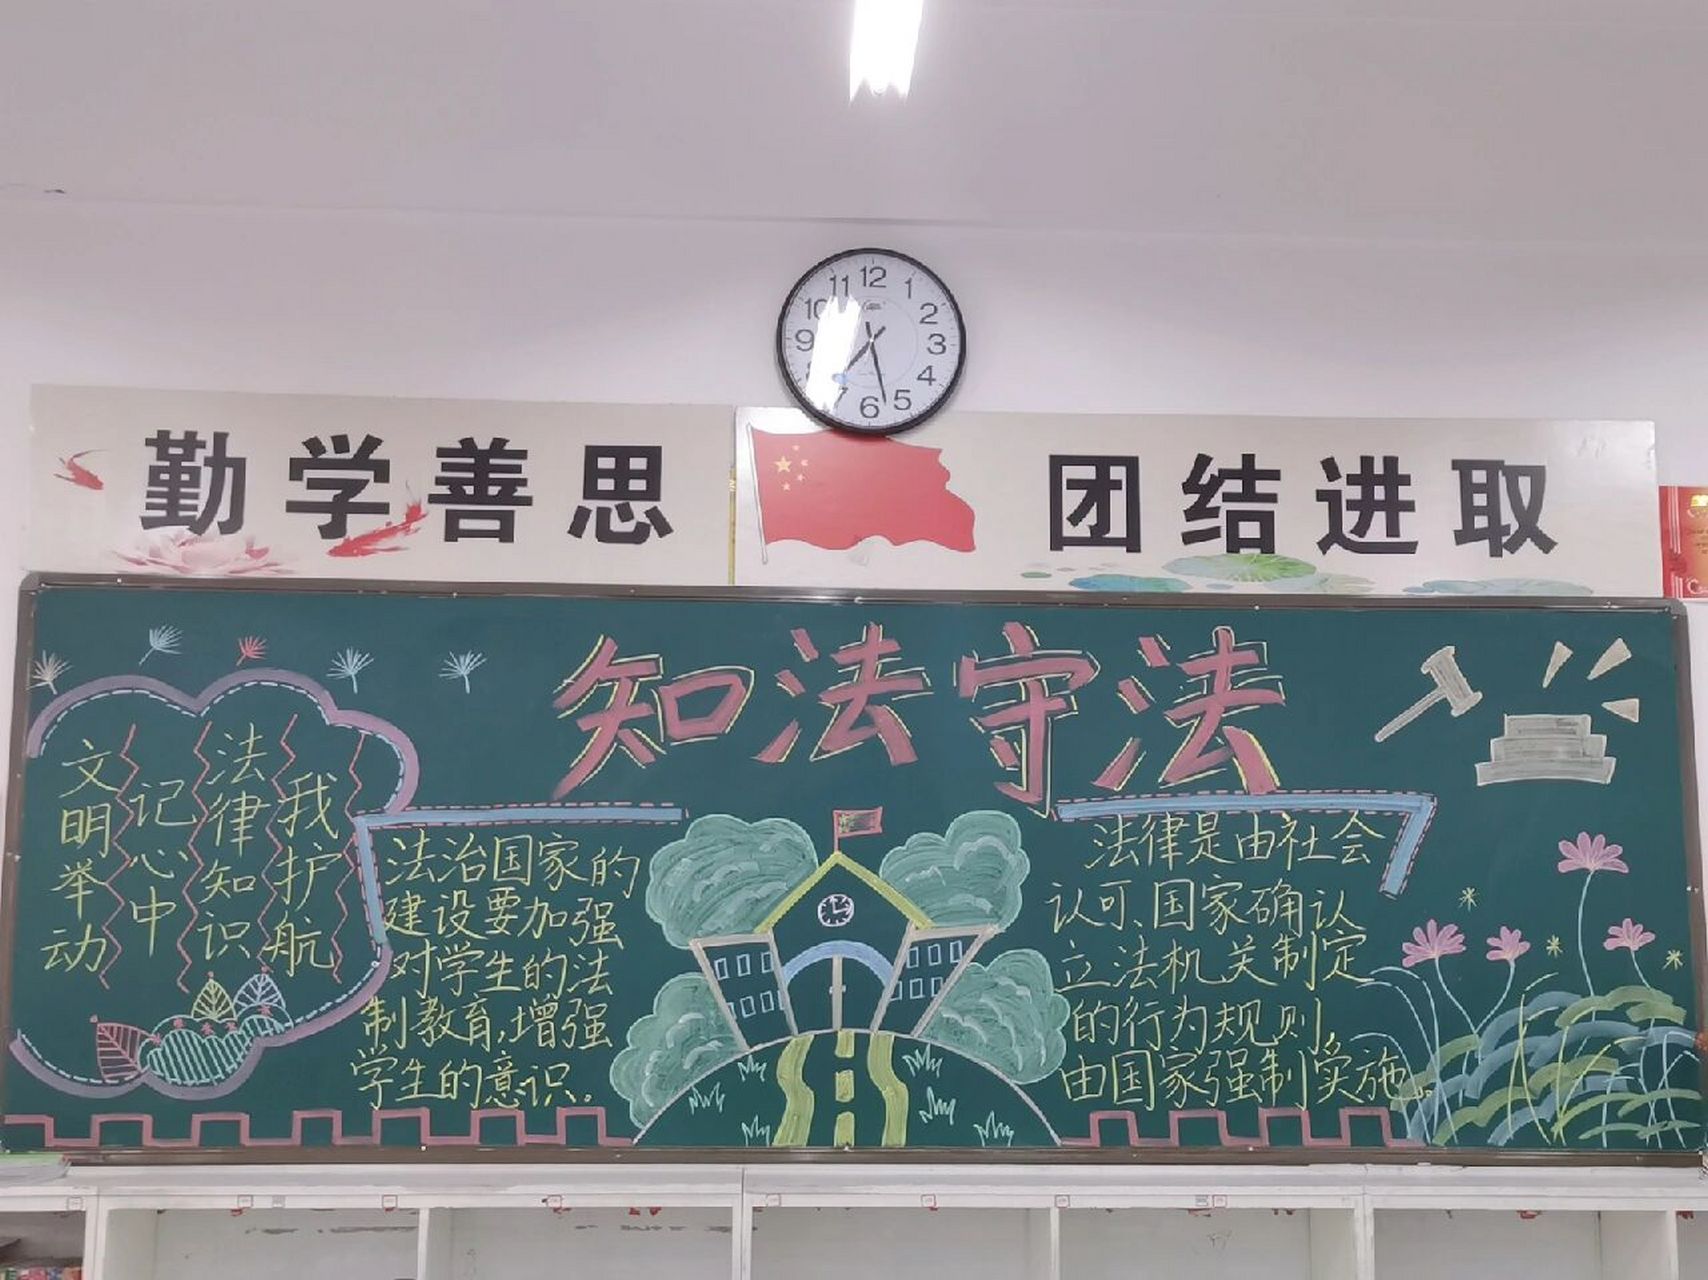 12
1
2
3
4
5
6
7
9
10
11
勤学善思
团结进取
知法守法
文明举动
记心中
法律知识
我护航
法治国家的
建设要加强
对学生的法
制教育,增强
学生的意识。
法律是由社会
认可、国家确认
立法机关制定
的行为规则,
由国家强制实施。